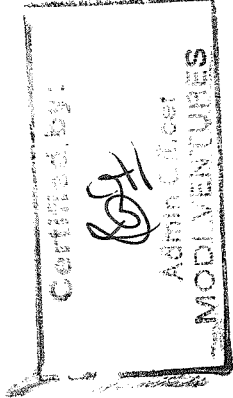 Certified by:
Admin Officer
MODI VENTURES